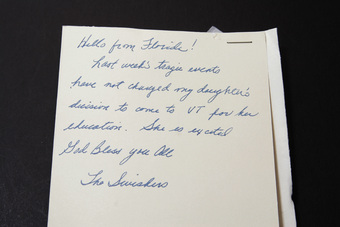 Hello from Florida!
Last week's tragic events
have not changed my daughter's
decision to come to VT for her
education. She is excited
God Bless you All
The